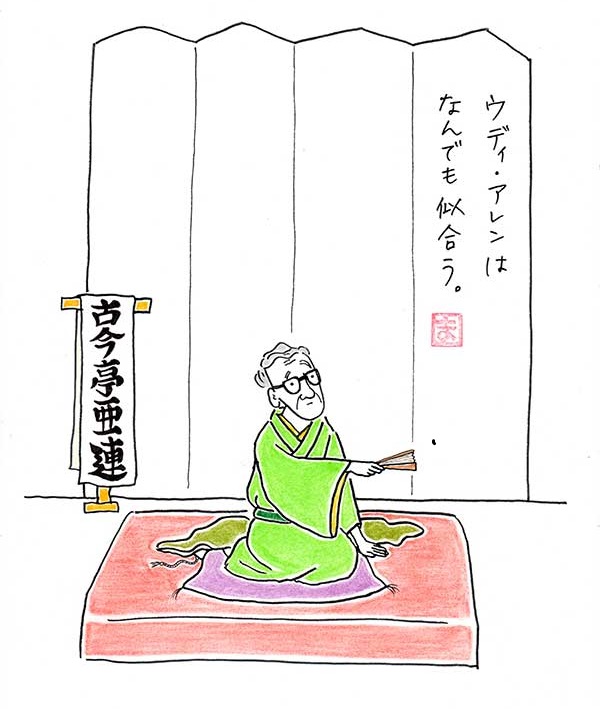 ウディ・アレンは
なんでも似合う。
ま
古今亭亜連